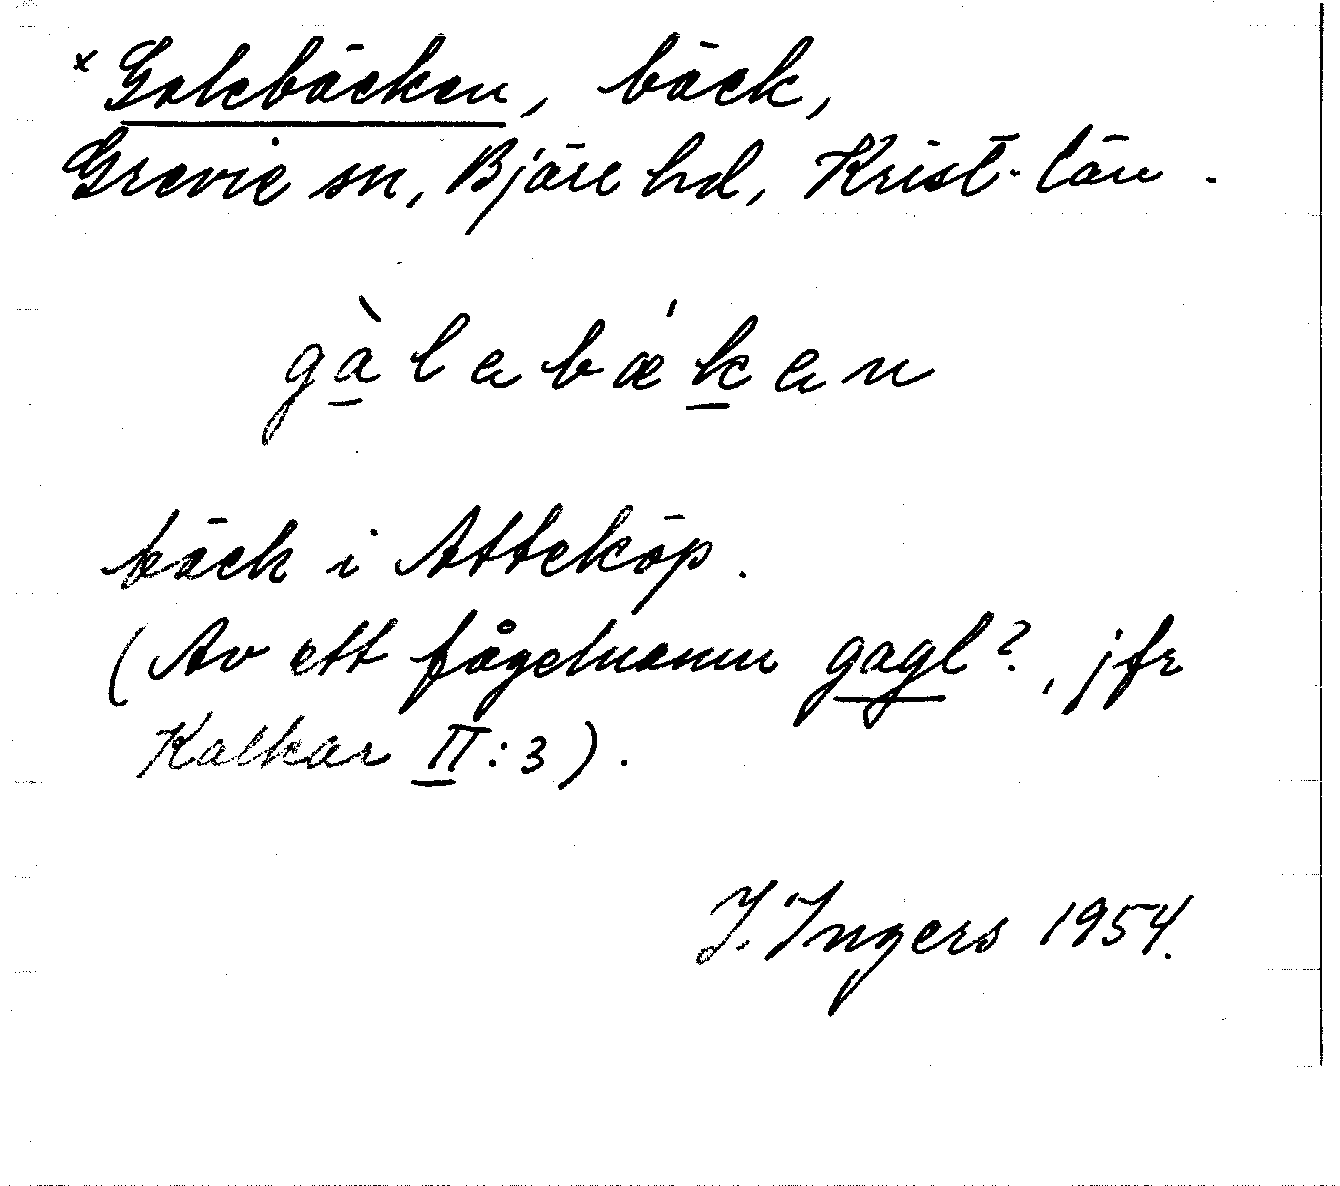 × Galebäcken, bäck,
Grevie sn, Bjäre hd, Krist. län.
gàlebæken
bäck i Atteköp.
(Av ett fågelnamn gagl?, jfr
Kalkar II:3).
I. Ingers 1954.